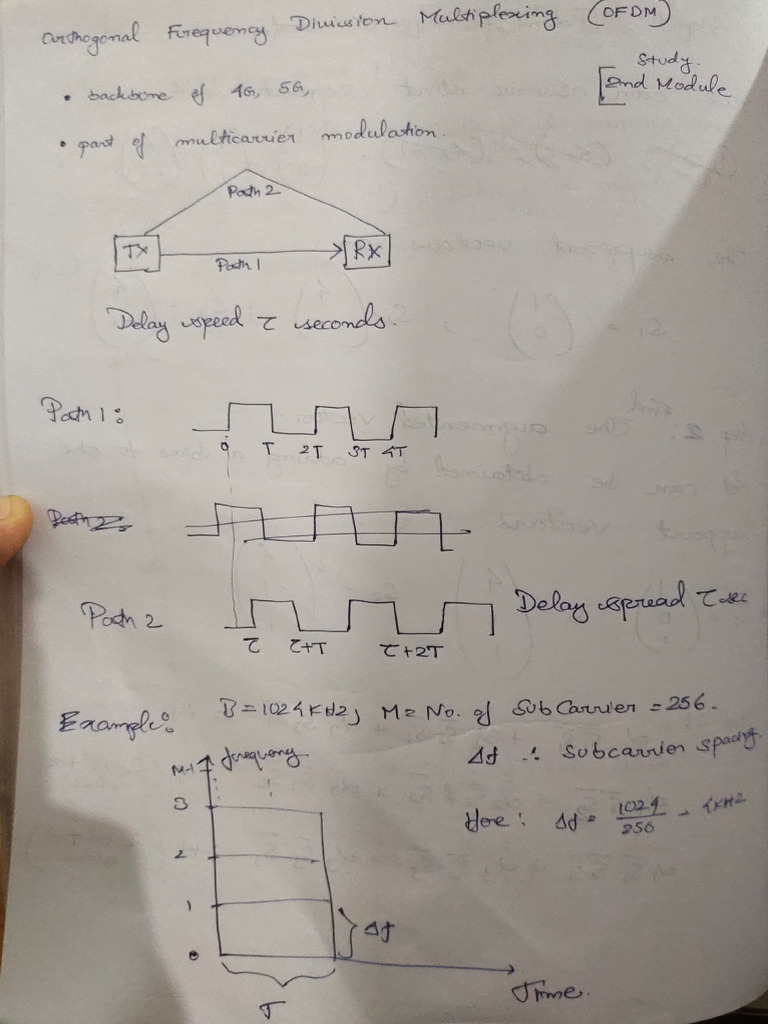 Orthogonal Frequency Division Multiplexing (OFDM)
Study.
[2nd Module
• backbone of 4G, 5G,
• part of multicarrier modulation.
Path 2
TX RX
Path 1
Delay speed τ seconds.
Path 1:
0 T 2T 3T 4T
Path 2
Delay spread τ sec
τ τ+T τ+2T
Example: B = 1024 KHz, M = No. of SubCarrier = 256.
Δf ∴ Subcarrier spacing.
Here: Δf = 1024/256 = 4KHz
frequency
M-1
3
2
1
Δf
0
T
Time.